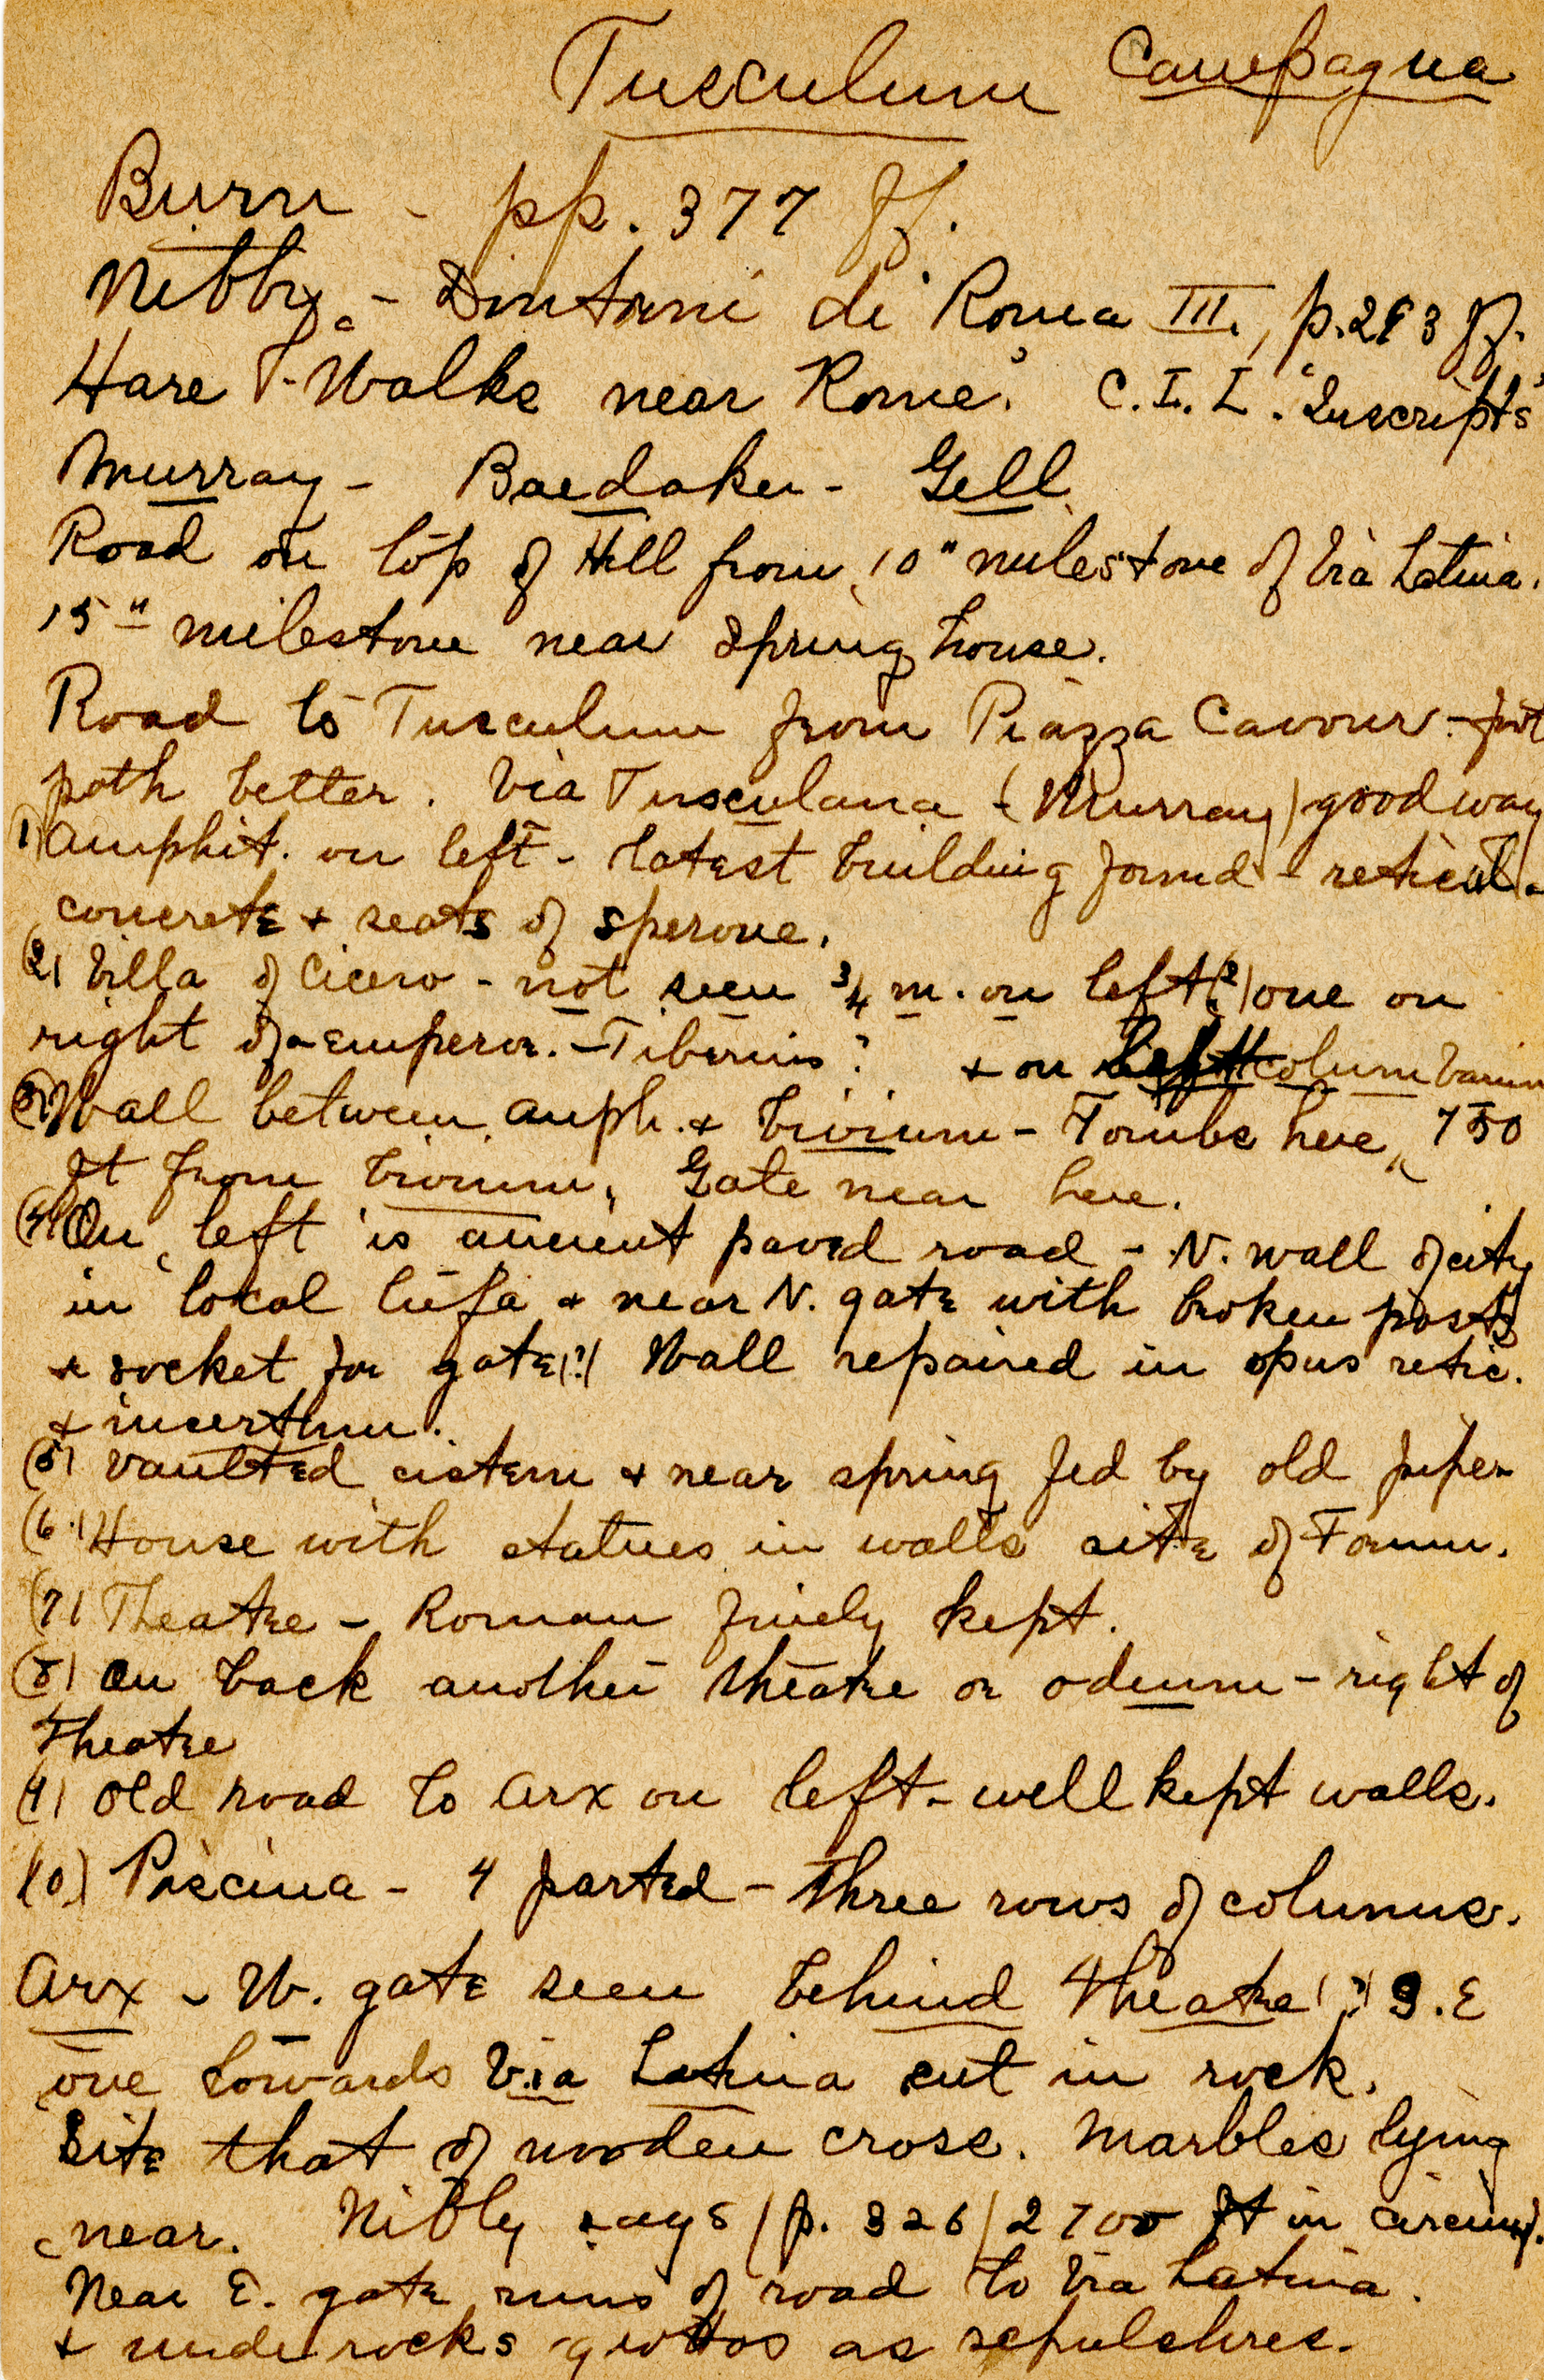 Tusculum Campagna
Burn - pp. 377 ff.
Nibby - Dintorni di Roma III., p. 293 ff.
Hare - "Walks near Rome." C. I. L. "Inscripts"
Murray - Baedaker - Gell
Road on top of Hill from 10" milestone of Via Latina.
15" milestone near spring house.
Road to Tusculum from Piazza Cavour - foot
path better. Via Tusculana - (Murray) good way
1) Amphit. on left - latest building found - reticul.
concrete + seats of sperone.
(2) Villa of Cicero - not seen 3/4 m. on left (?) one on
right of emperor. - Tiberius? + on columbarium
(3) Wall between amph. + trivium - Tombs here, 750
ft from trivium. Gate near here.
(4) On left is ancient paved road - N. wall of city
in local tufa + near N. gate with broken posts
+ socket for gate (?) Wall repaired in opus retic.
+ incertum.
(5) Vaulted cistern + near spring fed by old pipe -
(6.) House with statues in walls site of Forum.
(7) Theatre - Roman finely kept.
(8) On back another theatre or odeum - right of
Theatre
(9) Old road to Arx on left - well kept walls.
(10) Piscina - 4 parted - three rows of columns.
Arx - W. gate seen behind theatre (?) S. E
one towards Via Latina cut in rock.
Site that of wooden cross. Marbles lying
near. Nibby says (p. 326) 2700 ft in circumf.
Near E. gate runs of road to Via Latina.
+ under rocks - grottos as sepulchres.